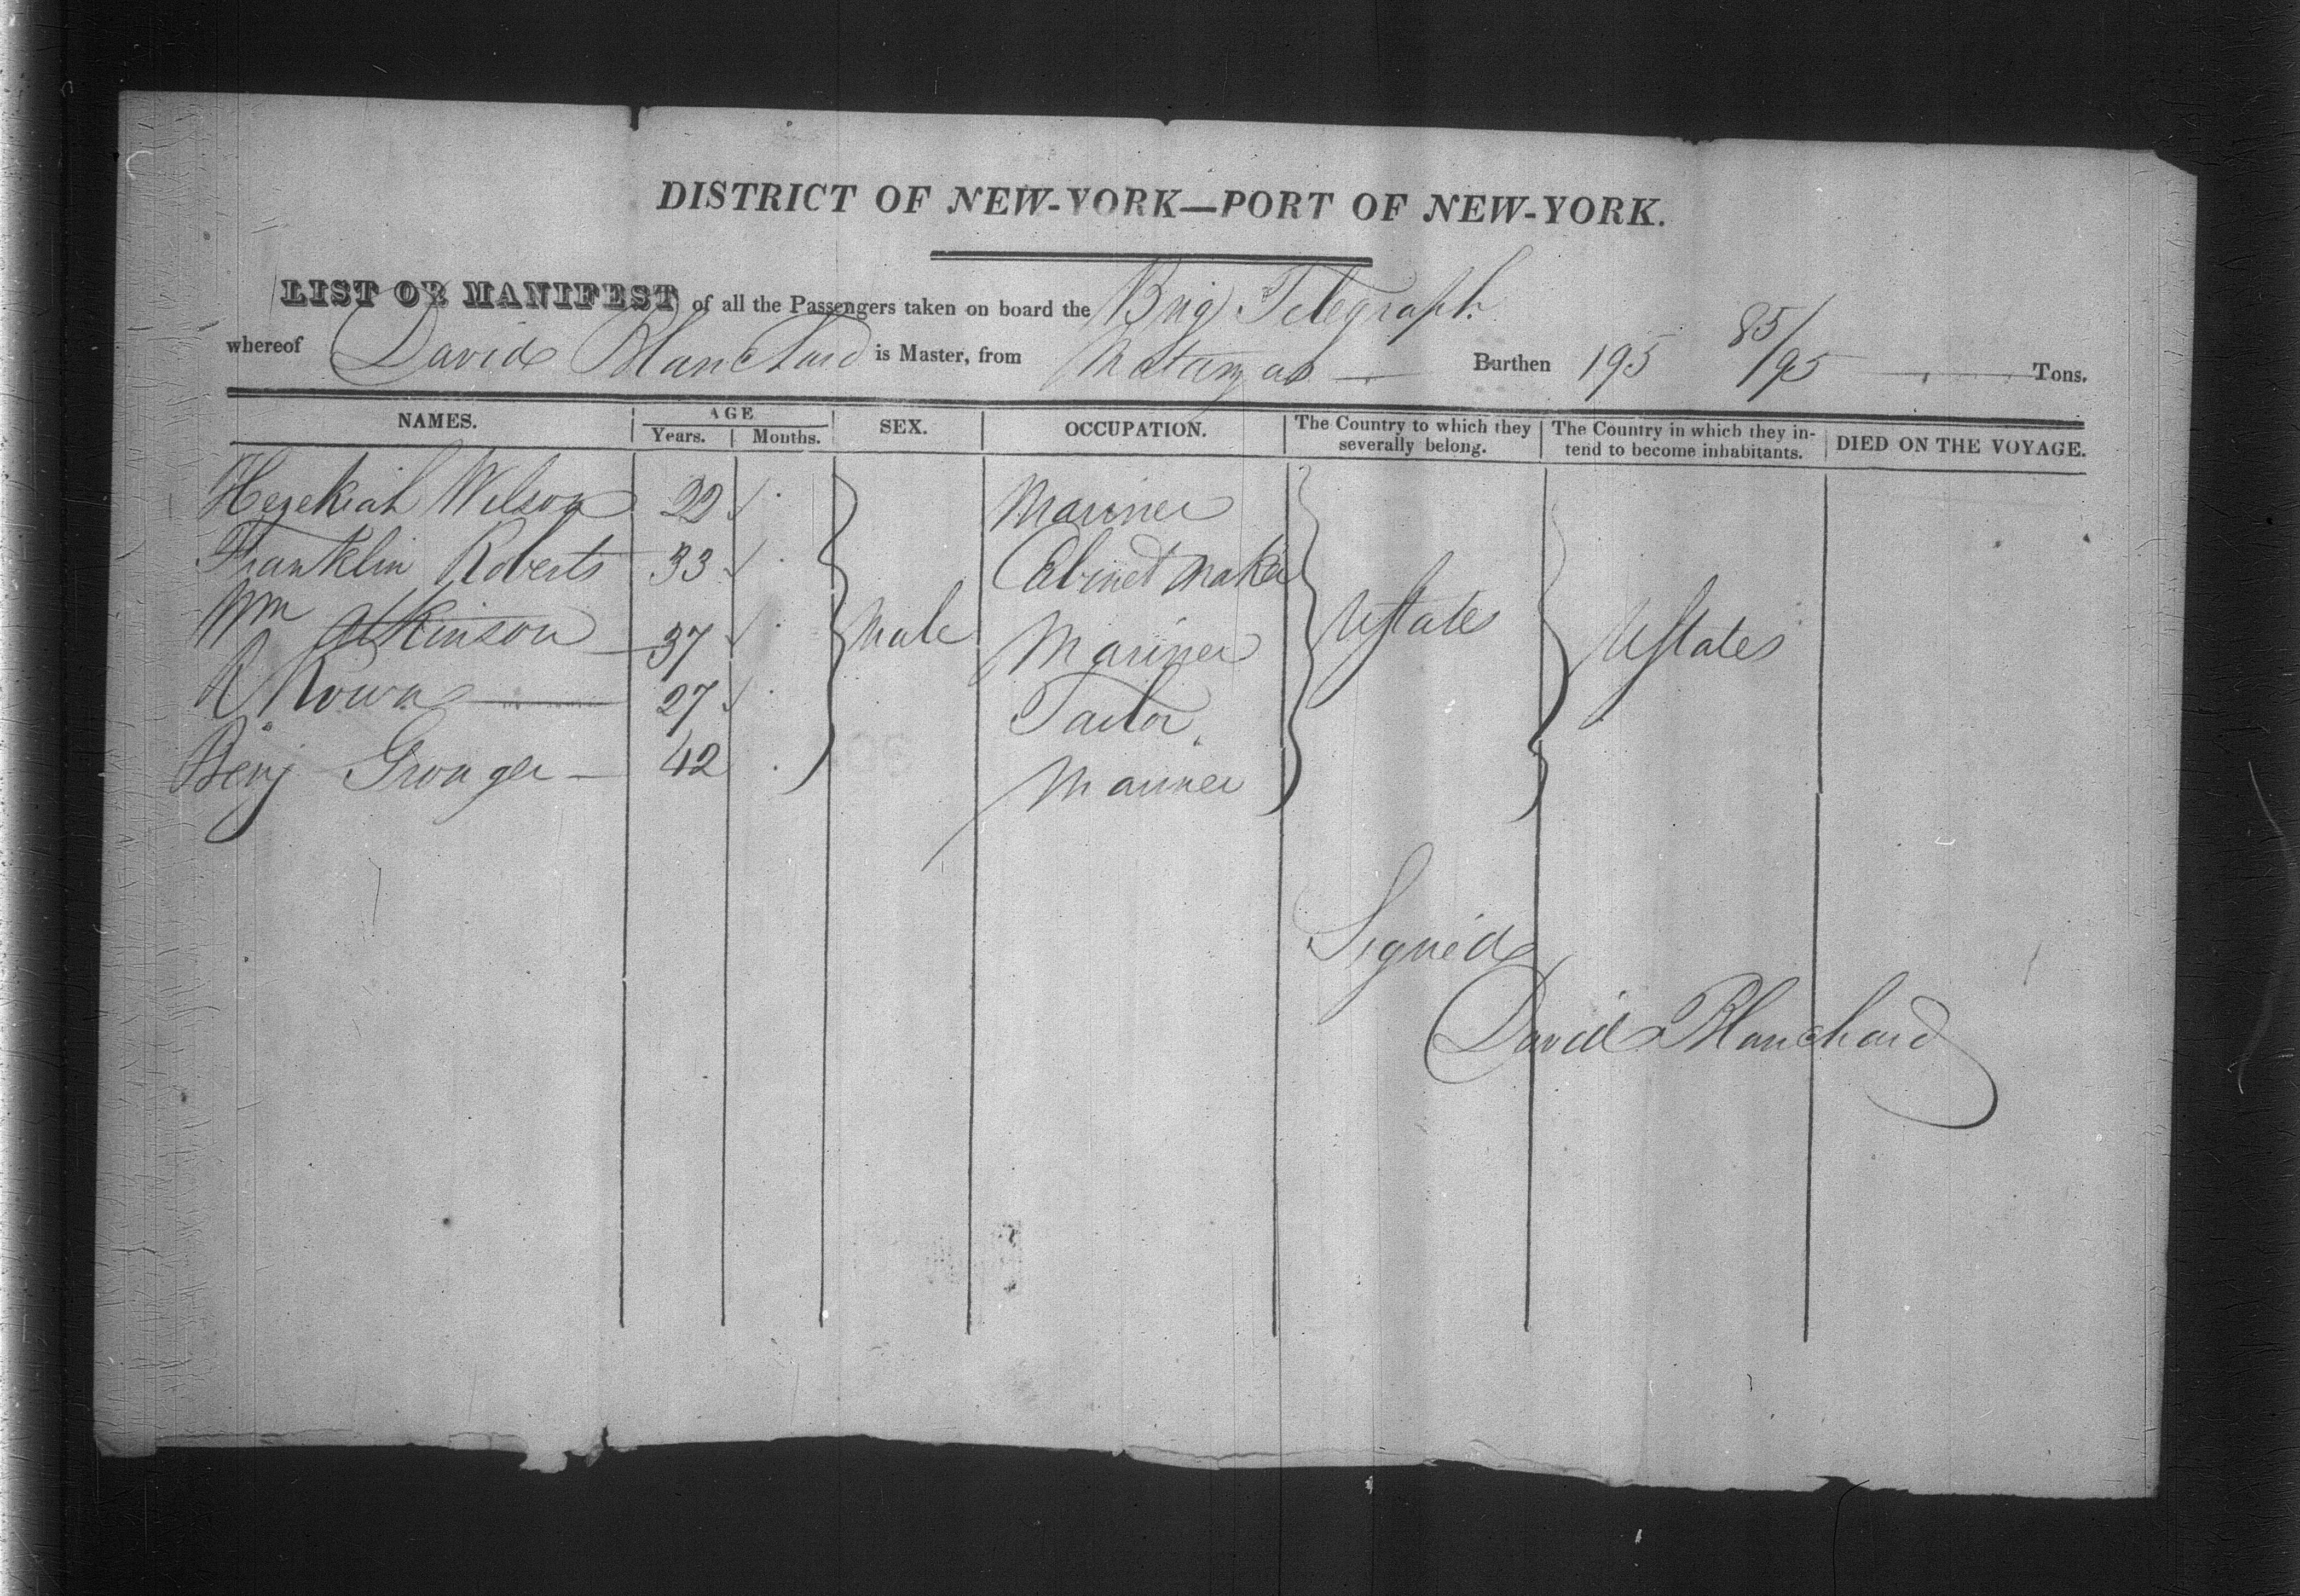 DISTRICT OF NEW-YORK—PORT OF NEW-YORK.
LIST OR MANIFEST of all the Passengers taken on board the Brig Telegraph
whereof David Blanchard is Master, from Matanzas Burthen 195 85/95 Tons.
NAMES. AGE Years. Months. SEX. OCCUPATION. The Country to which they severally belong. The Country in which they intend to become inhabitants. DIED ON THE VOYAGE.
Hezekiah Wilson Mariner
Franklin Roberts 33 Cabinet maker
Wm Atkinson 37 Male Mariner UStates UStates
Rown 27 Tailor
Benj Gronger 42 Mariner
Signed
David Blanchard